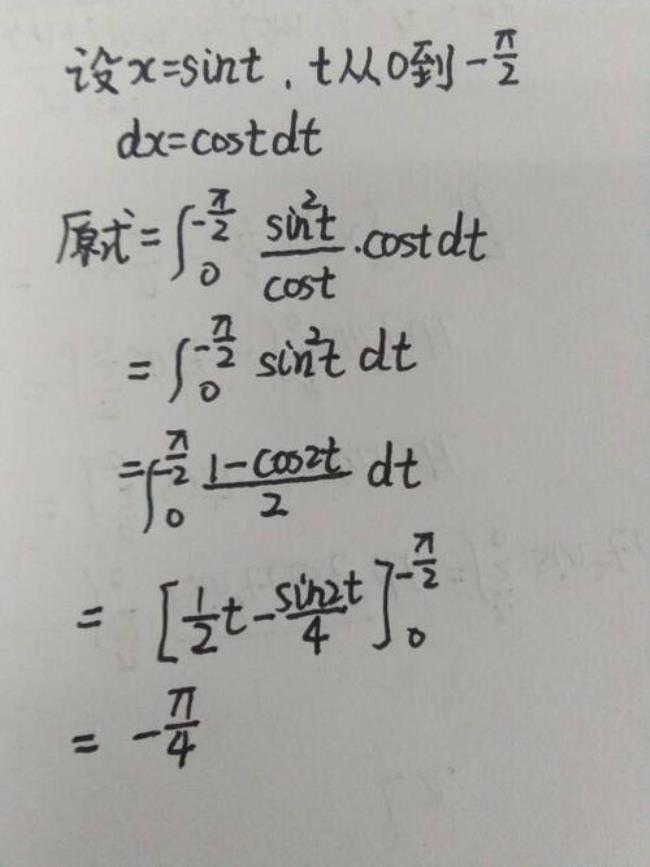 设x=sint,t从0到-π/2
dx=costdt
原式=∫₀^(-π/2) sin²t/cost·costdt
=∫₀^(-π/2) sin²t dt
=∫₀^(-π/2) (1-cos2t)/2 dt
=[1/2 t-sin2t/4]₀^(-π/2)
=-π/4